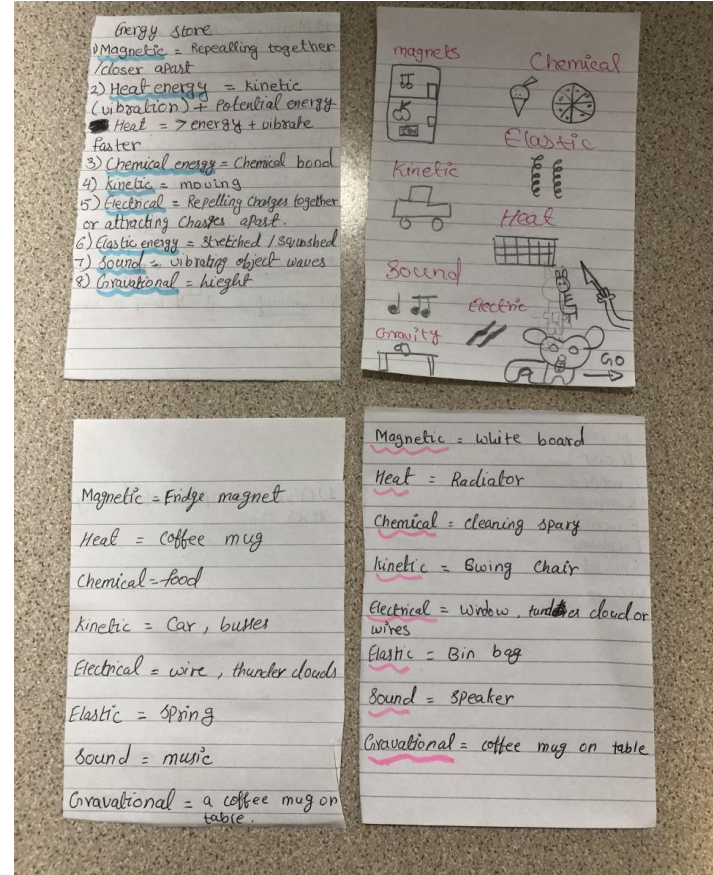 Energy store
1) Magnetic = Repealling together
/closer apart
2) Heat energy = kinetic
(vibration) + Potential energy
Heat = > energy + vibrate
faster
3) Chemical energy = Chemical bond
4) Kinetic = moving
5) Electrical = Repelling Charges together
or attracting Charges apart.
6) Elastic energy = Stretched / Squashed
7) Sound = vibrating object waves
8) Gravational = hieght
magnets
Chemical
Elastic
Kinetic
Heat
Sound
Electric
Gravity
GO
Magnetic = Fridge magnet
Heat = Coffee mug
Chemical = food
Kinetic = Car, busses
Electrical = wire, thunder clouds
Elastic = Spring
Sound = music
Gravational = a coffee mug on
table.
Magnetic = white board
Heat = Radiator
Chemical = cleaning spary
kinetic = Swing Chair
Electrical = cloud or
wires
Elastic = Bin bag
Sound = Speaker
Gravational = coffee mug on table